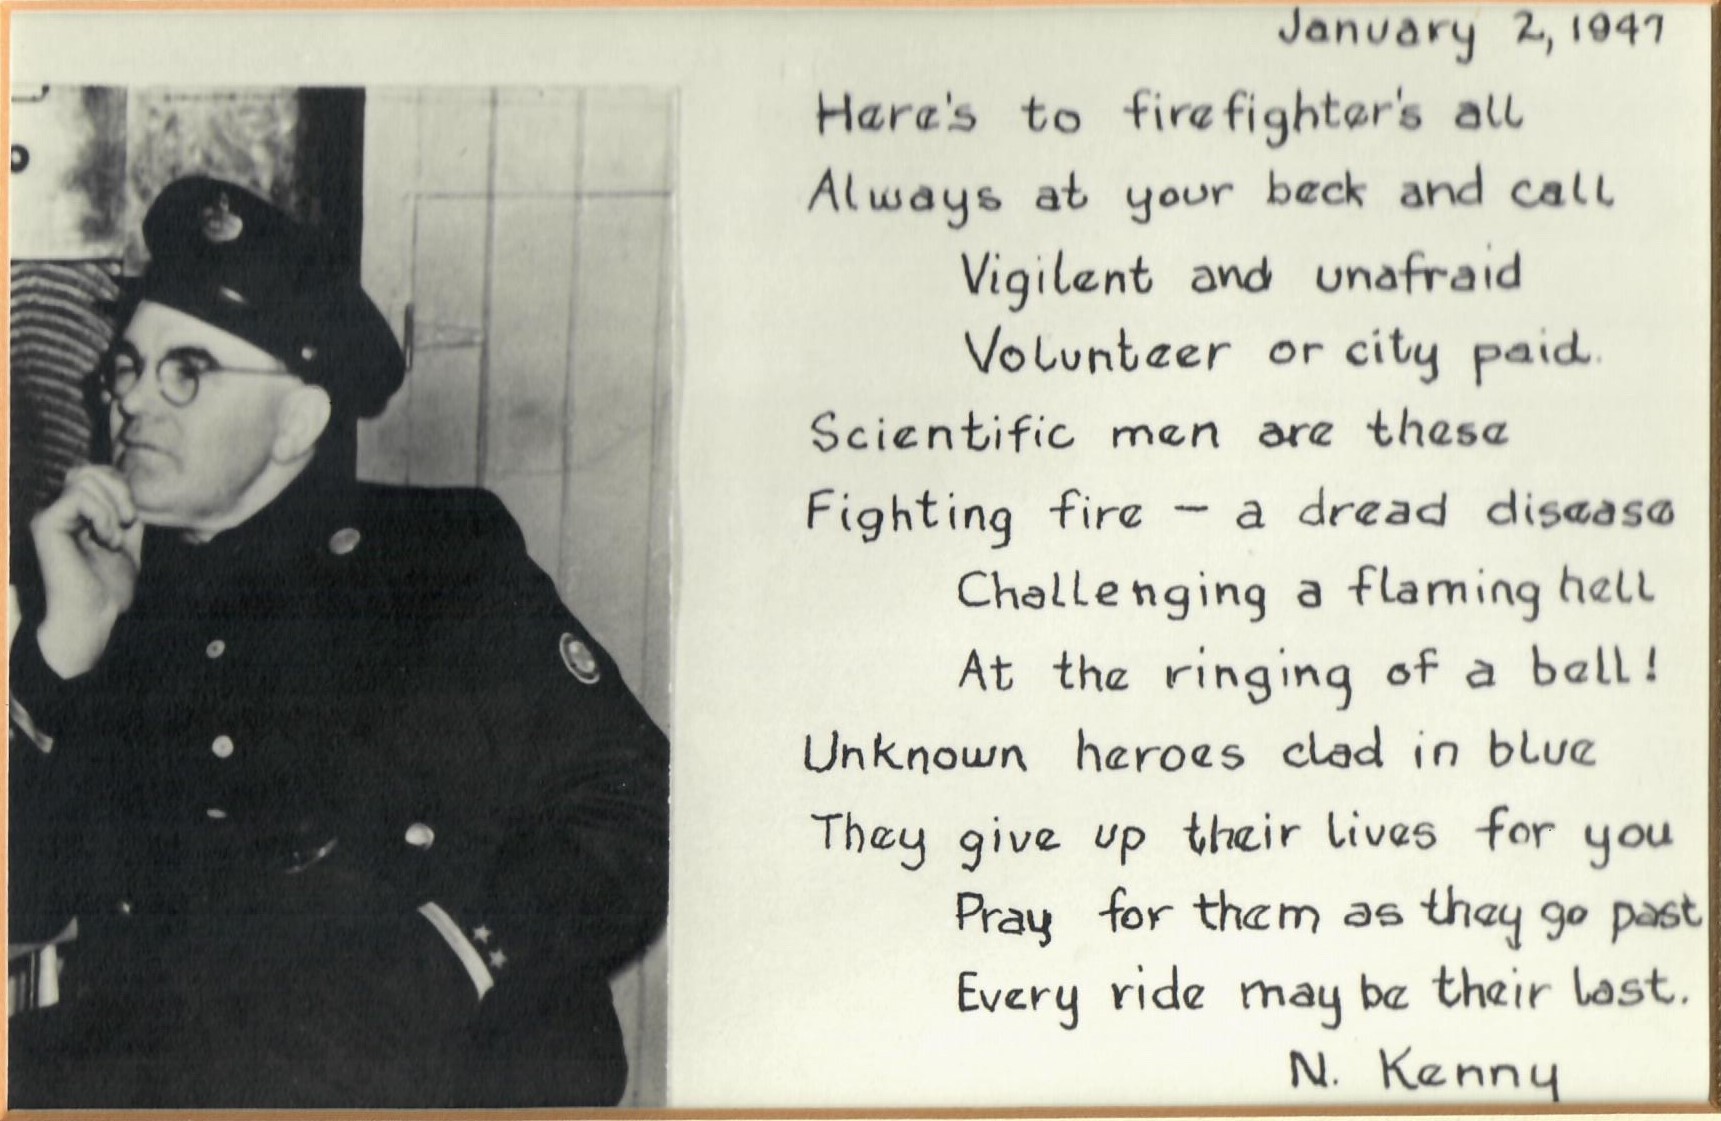 January 2, 1947
Here's to firefighter's all
Always at your beck and call
Vigilent and unafraid
Volunteer or city paid.
Scientific men are these
Fighting fire – a dread disease
Challenging a flaming hell
At the ringing of a bell!
Unknown heroes clad in blue
They give up their lives for you
Pray for them as they go past
Every ride may be their last.
N. Kenny